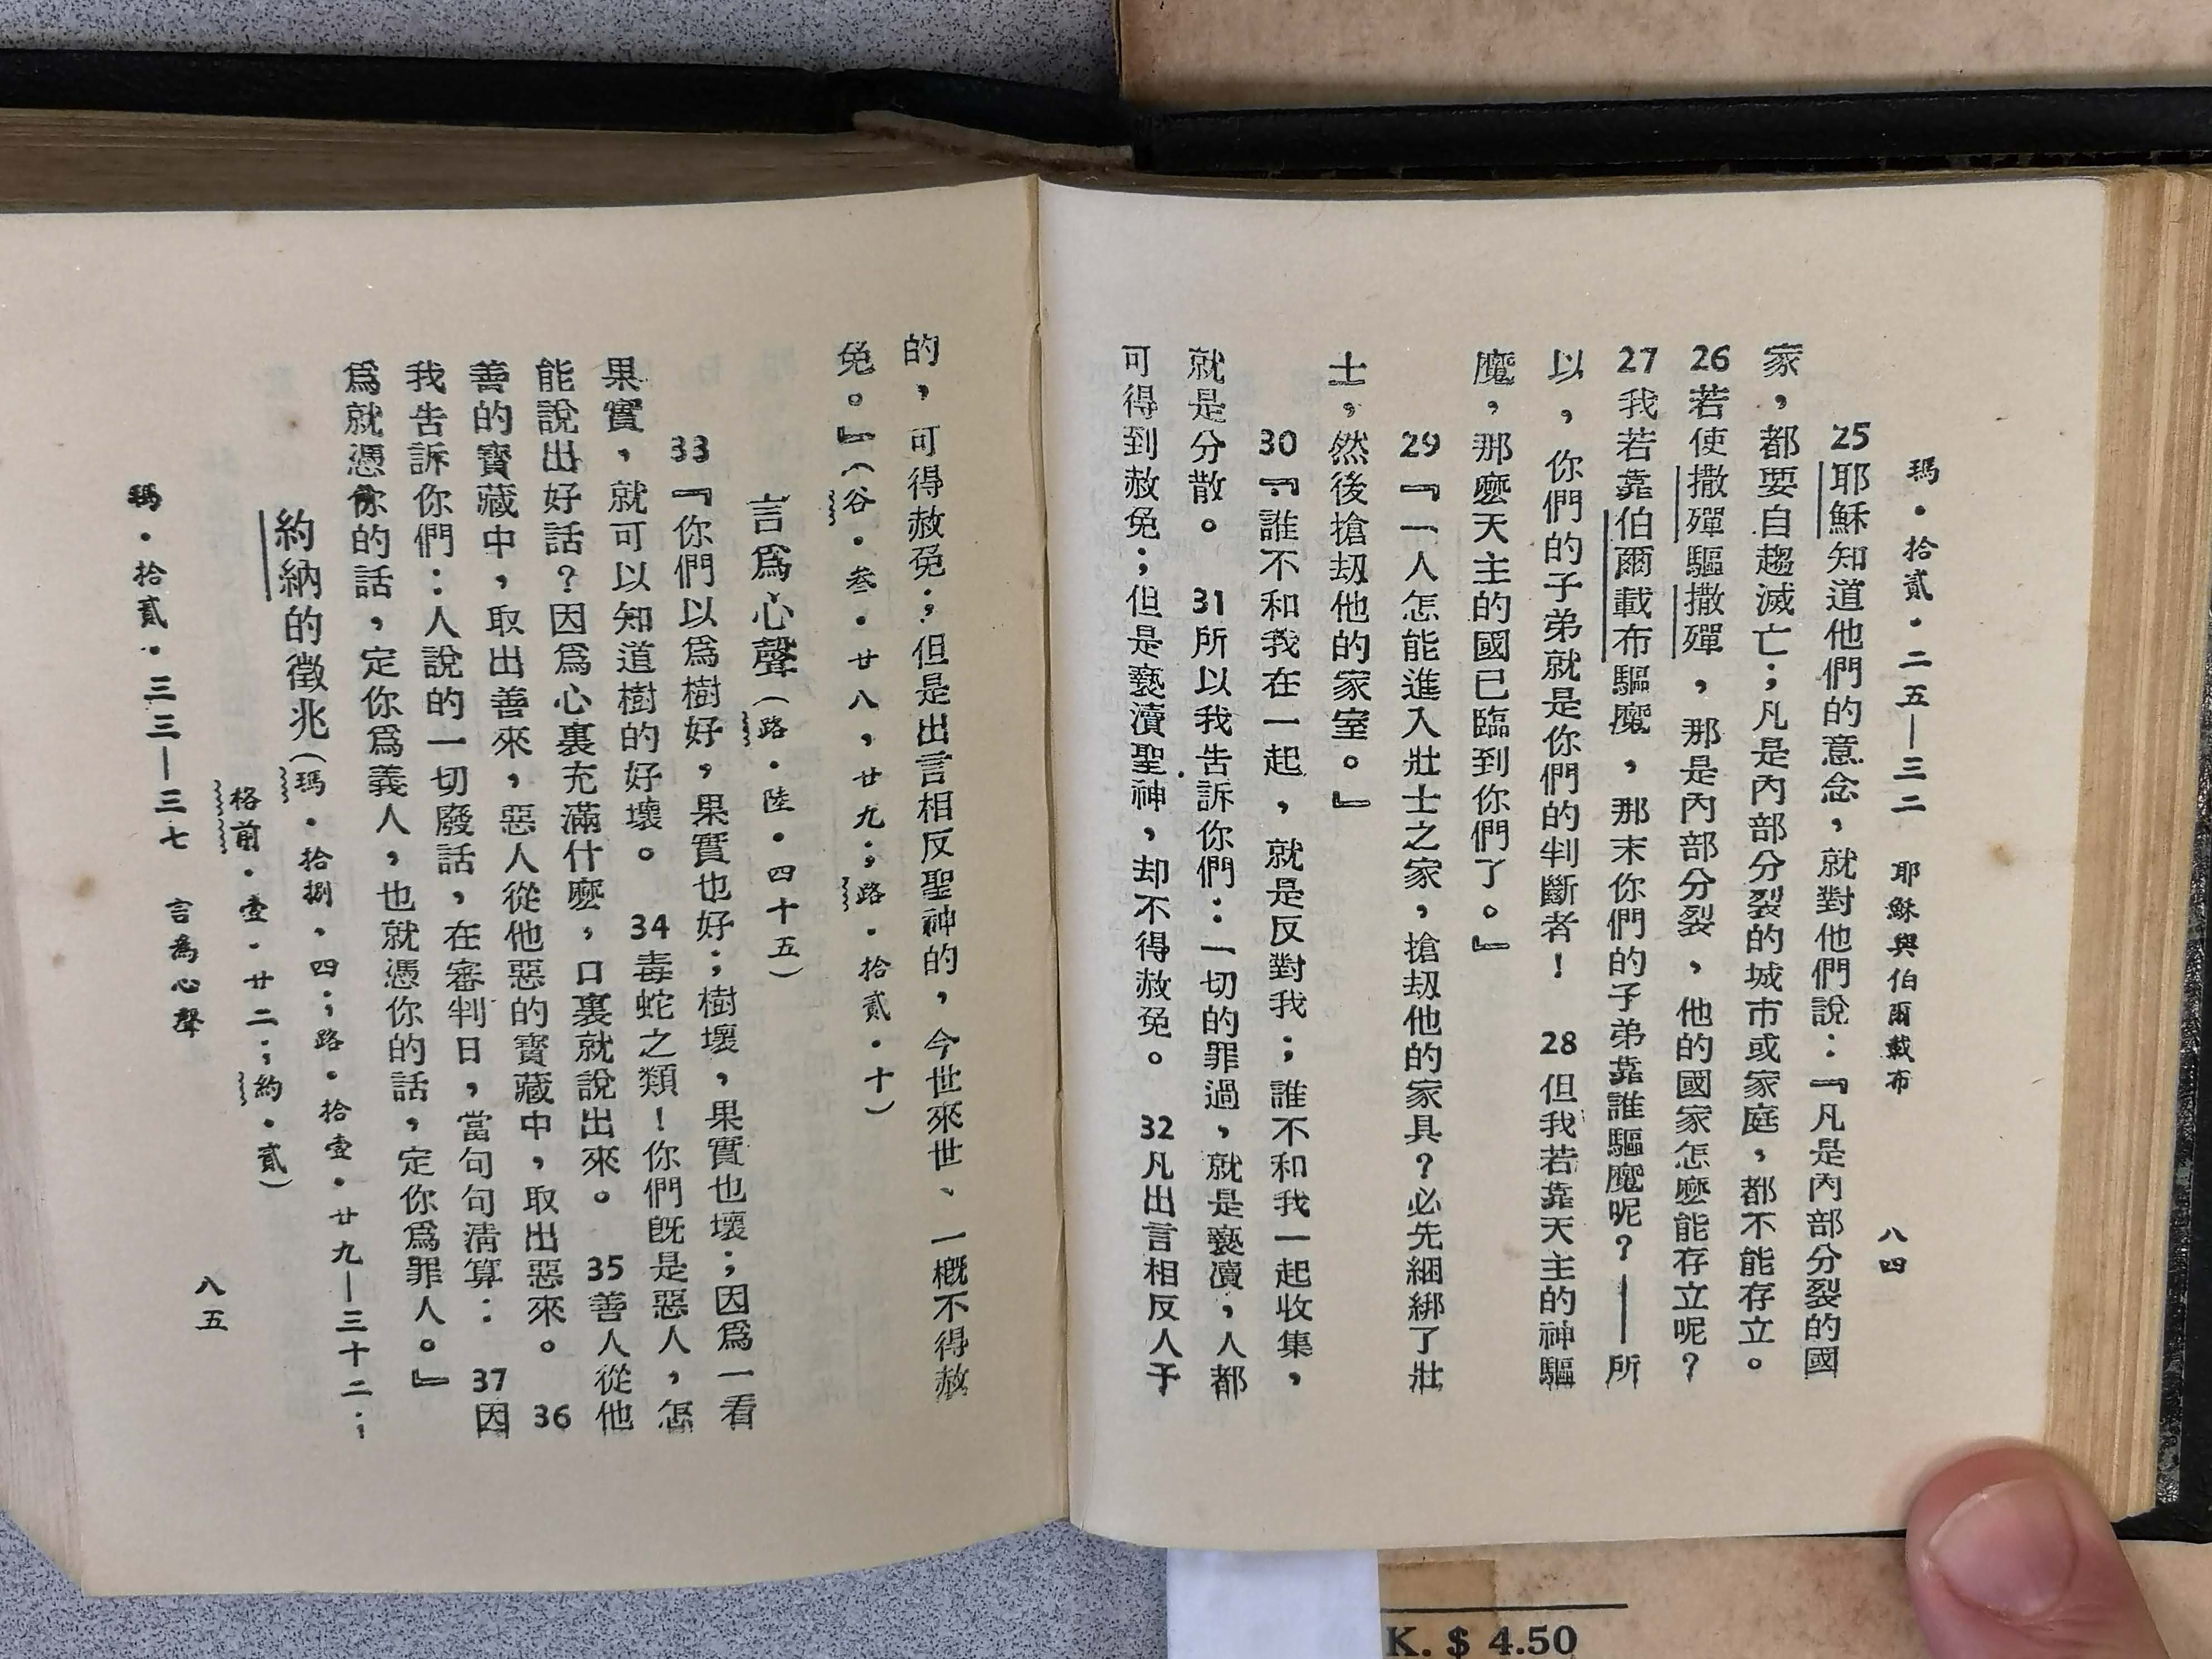 瑪・拾貳・二五—三二　耶穌與伯爾載布　八四
25耶穌知道他們的意念，就對他們說：『凡是內部分裂的國
家，都要自趨滅亡；凡是內部分裂的城市或家庭，都不能存立。
26若使撒殫驅撒殫，那是內部分裂，他的國家怎麼能存立呢？
27我若靠伯爾載布驅魔，那末你們的子弟靠誰驅魔呢？——所
以，你們的子弟就是你們的判斷者！　28但我若靠天主的神驅
魔，那麼天主的國已臨到你們了。』
29『一人怎能進入壯士之家，搶刼他的家具？必先綑綁了壯
士，然後搶刼他的家室。』
30『誰不和我在一起，就是反對我；誰不和我一起收集，
就是分散。　31所以我告訴你們：一切的罪過，就是褻瀆，人都
可得到赦免；但是褻瀆聖神，却不得赦免。　32凡出言相反人子
的，可得赦免；但是出言相反聖神的，今世來世、一概不得赦
免。』（谷・叁・廿八，廿九；路・拾貳・十）
言爲心聲（路・陸・四十五）
33『你們以爲樹好，果實也好；樹壞，果實也壞；因爲一看
果實，就可以知道樹的好壞。　34毒蛇之類！你們旣是惡人，怎
能說出好話？因爲心裏充滿什麼，口裏就說出來。　35善人從他
善的寶藏中，取出善來，惡人從他惡的寶藏中，取出惡來。　36
我告訴你們：人說的一切廢話，在審判日，當句句淸算：　37因
爲就憑你的話，定你爲義人，也就憑你的話，定你爲罪人。』
約納的徵兆（瑪・拾捌，四；路・拾壹・廿九—三十二；
格前・壹・廿二；約・貳）
瑪・拾貳・三三—三七　言爲心聲　八五
K. $ 4.50